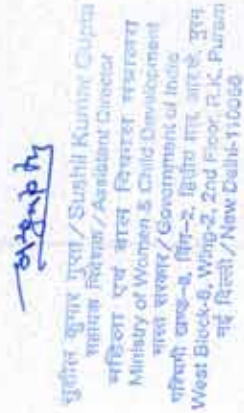 सुशील कुमार गुप्ता/Sushil Kumar Gupta
सहायक निदेशक/Assistant Director
महिला एवं बाल विकास मंत्रालय
Ministry of Women & Child Development
भारत सरकार/Government of India
पश्चिमी खण्ड-8, विंग-2, द्वितीय तल, आर.के. पुरम
West Block-8, Wing-2, 2nd Floor, R.K. Puram
नई दिल्ली/New Delhi-110066